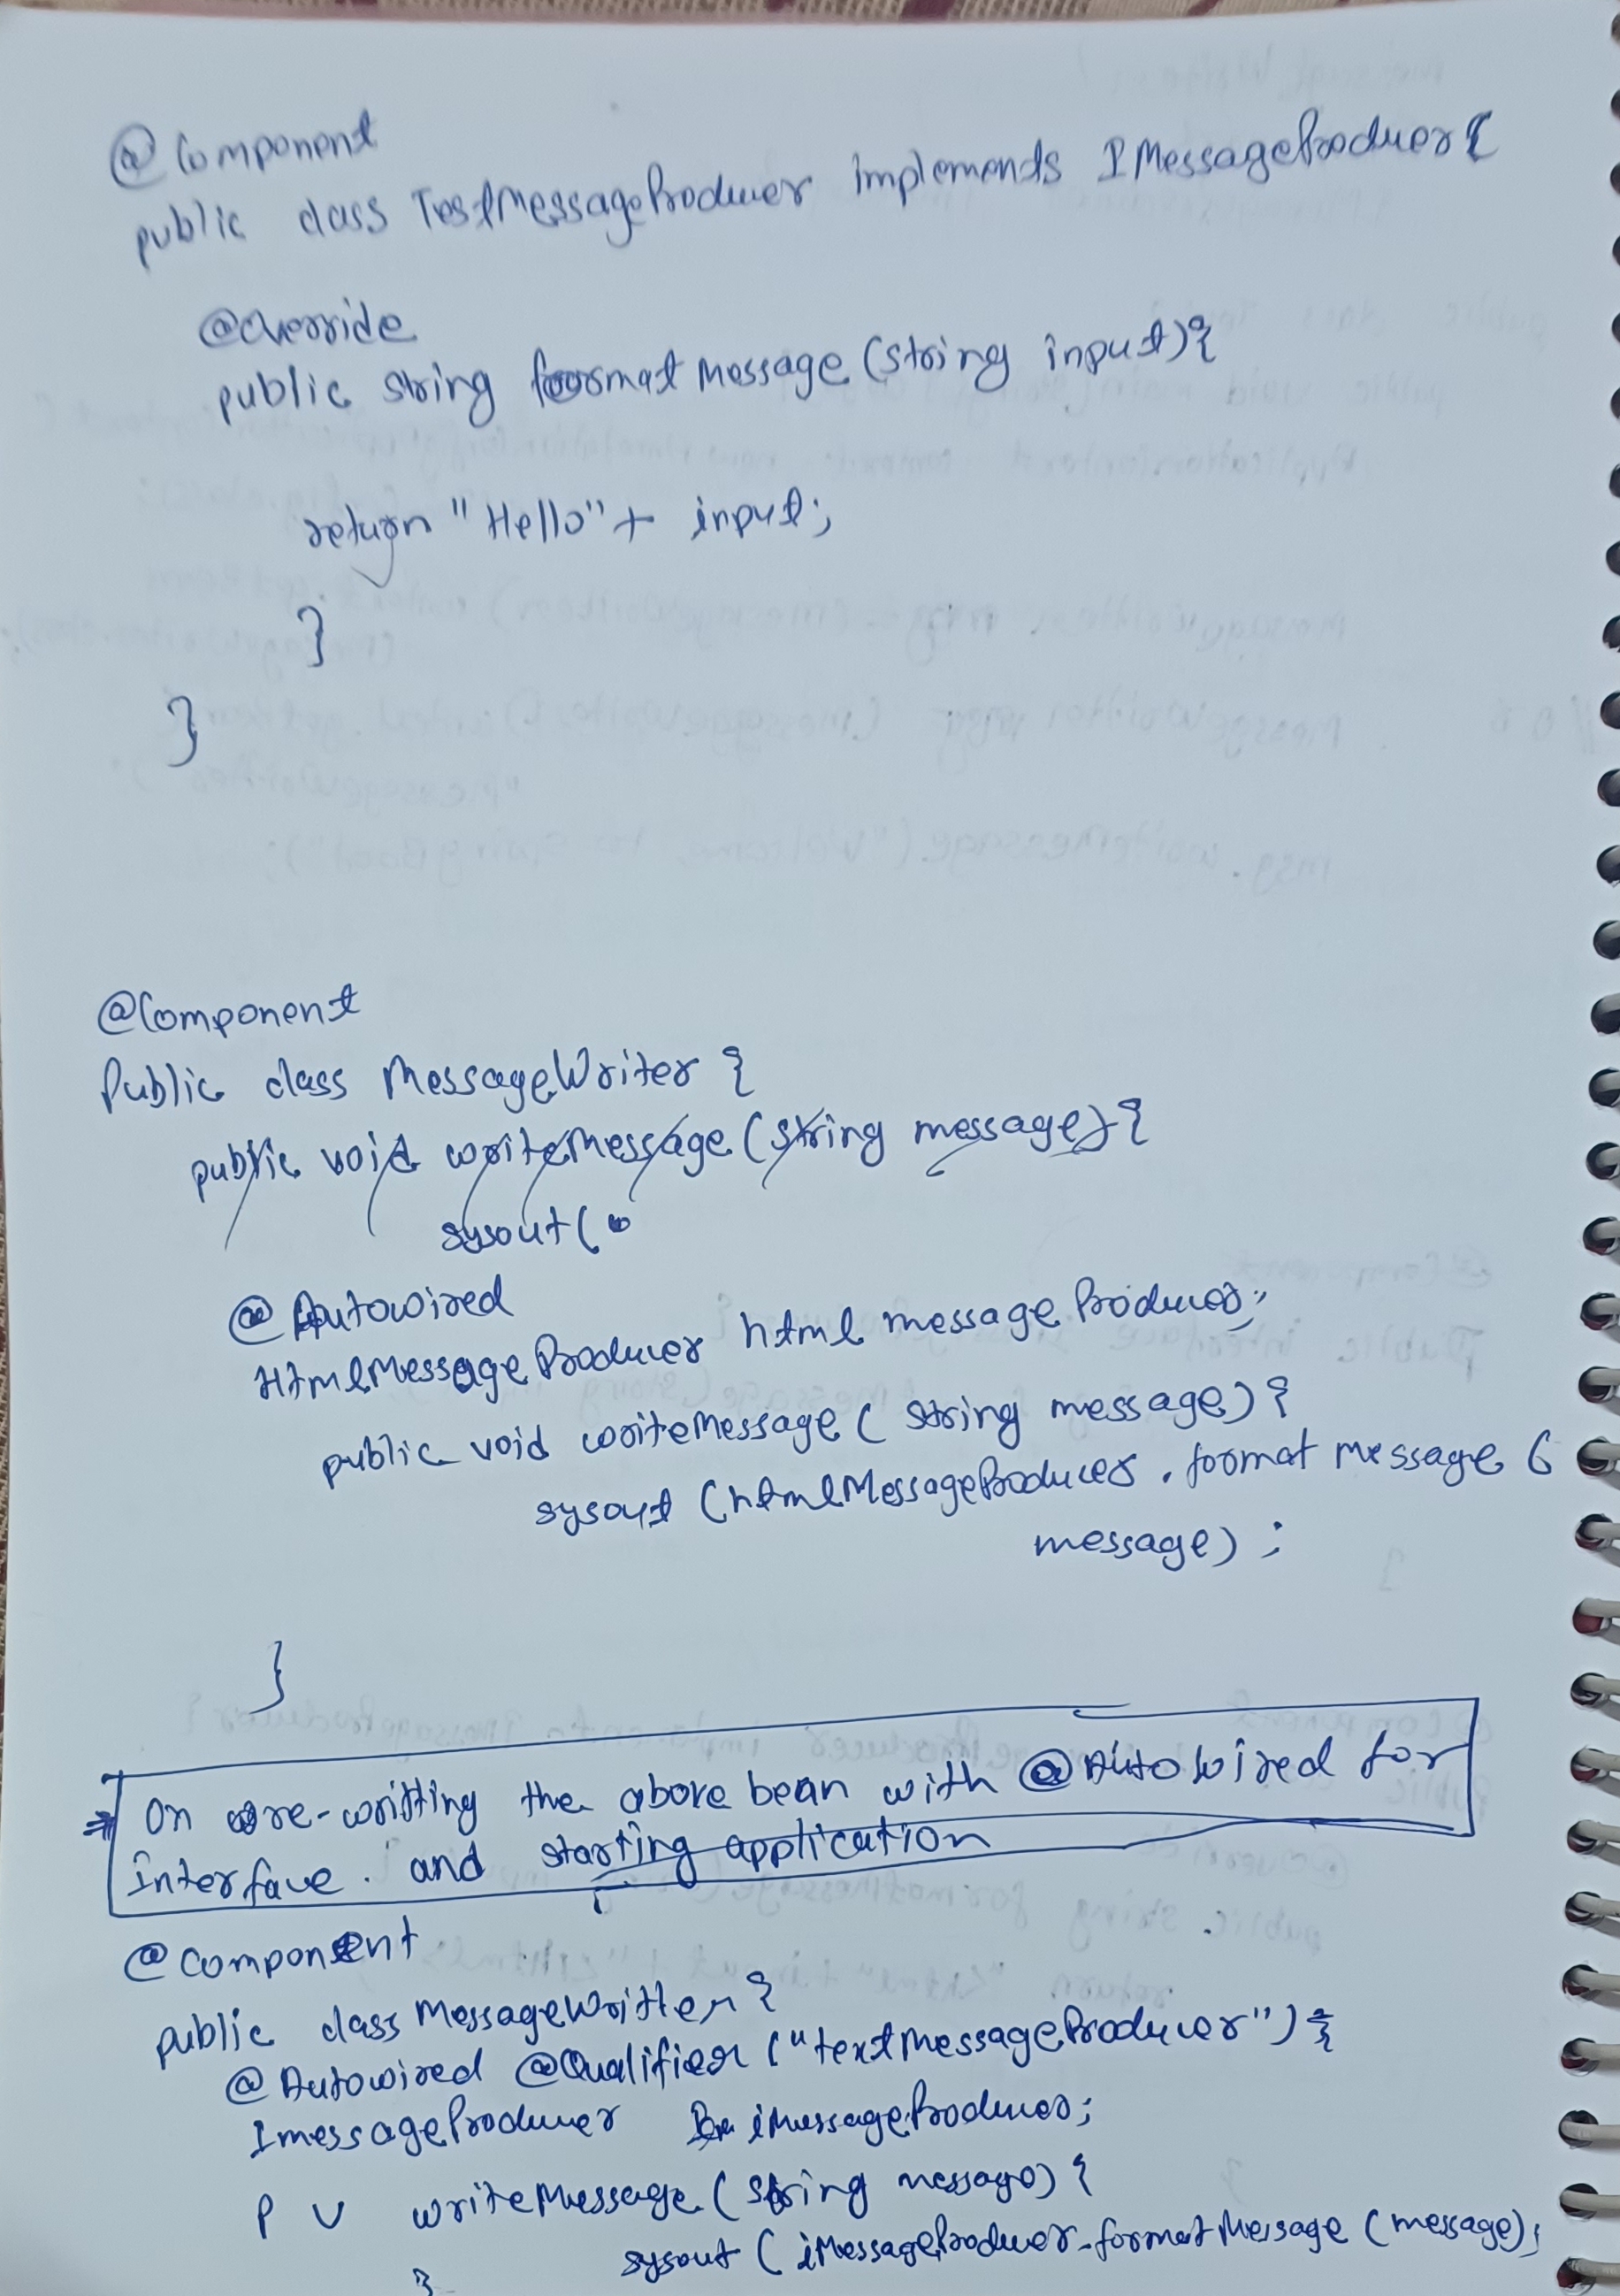 @Component
public class TextMessageProducer implements IMessageProducer {
@Override
public string formatMessage (string input) {
return "Hello" + input;
}
}
@Component
Public class MessageWriter {
public void writeMessage (string message) {
sysout (
@Autowired
HtmlMessageProducer htmlmessageProducer;
public void writeMessage ( string message) {
sysout (htmlMessageProducer . format message (
message) ;
}
On re-writting the above bean with @AutoWired for
Interface. and starting application
@component
public class MessageWritter {
@Autowired @Qualifier ("textMessageProducer") }
ImessageProducer iMessageProducer;
P V writeMessage ( string message) {
sysout ( iMessageProducer.formatMessage (message);
}